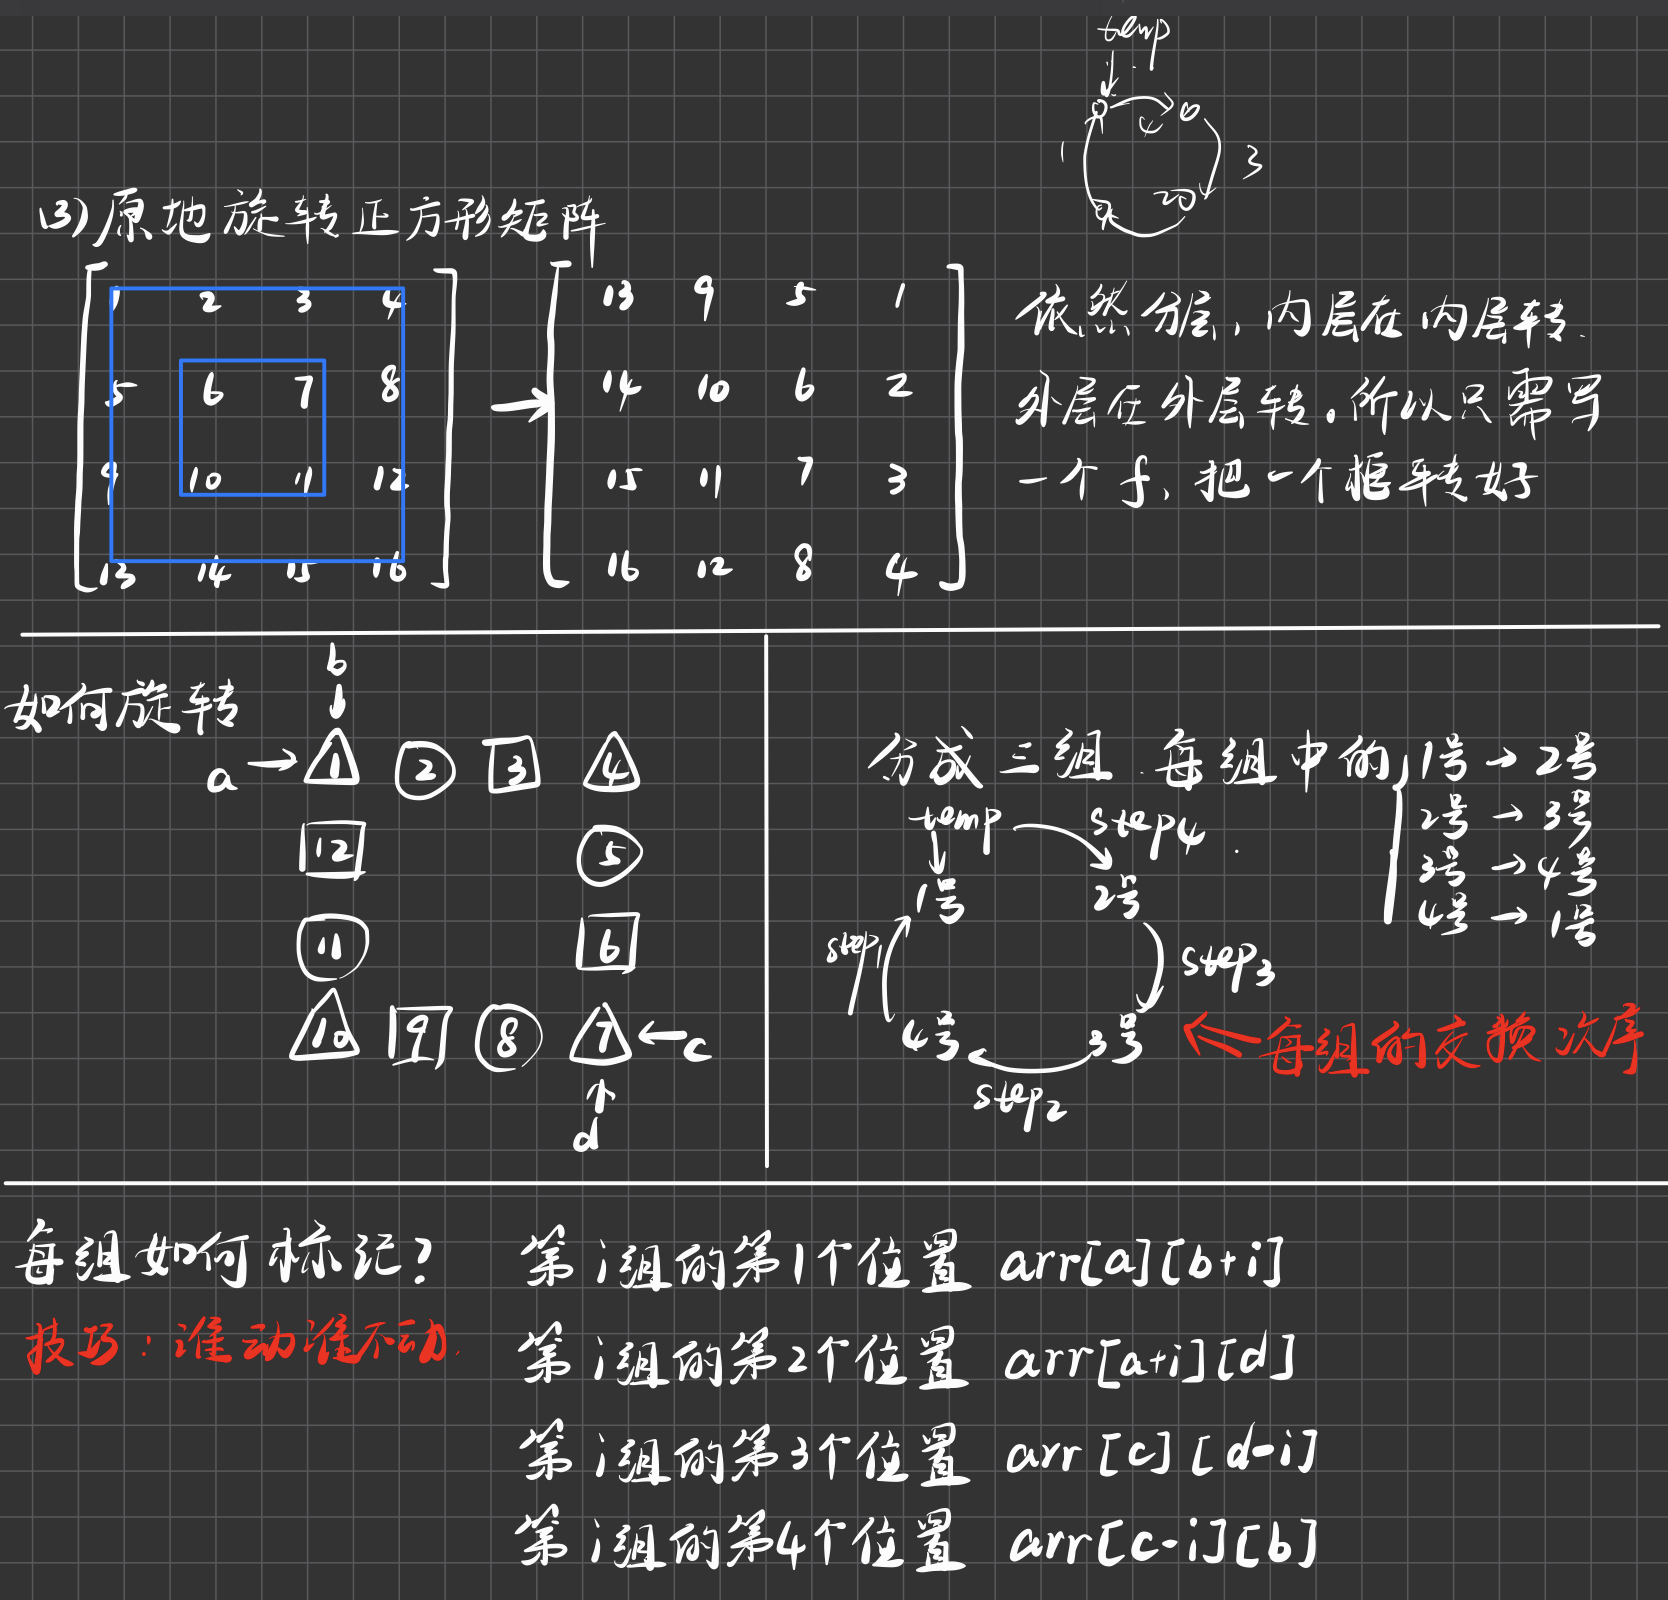 temp
1 4 3
(3) 原地旋转正方形矩阵
1 2 3 4
5 6 7 8
9 10 11 12
13 14 15 16
13 9 5 1
14 10 6 2
15 11 7 3
16 12 8 4
依然分层，内层在内层转.
外层在外层转。所以只需写
一个f，把一个框转好
如何旋转
b
a 1 2 3 4
12 5
11 6
10 9 8 7 c
d
分成三组.每组中的 1号→2号
2号→3号
3号→4号
4号→1号
temp step4
1号 2号
step1 step3
4号 3号
step2
每组的交换次序
每组如何标记?
技巧：谁动谁不动.
第i组的第1个位置 arr[a][b+i]
第i组的第2个位置 arr[a+i][d]
第i组的第3个位置 arr[c][d-i]
第i组的第4个位置 arr[c-i][b]